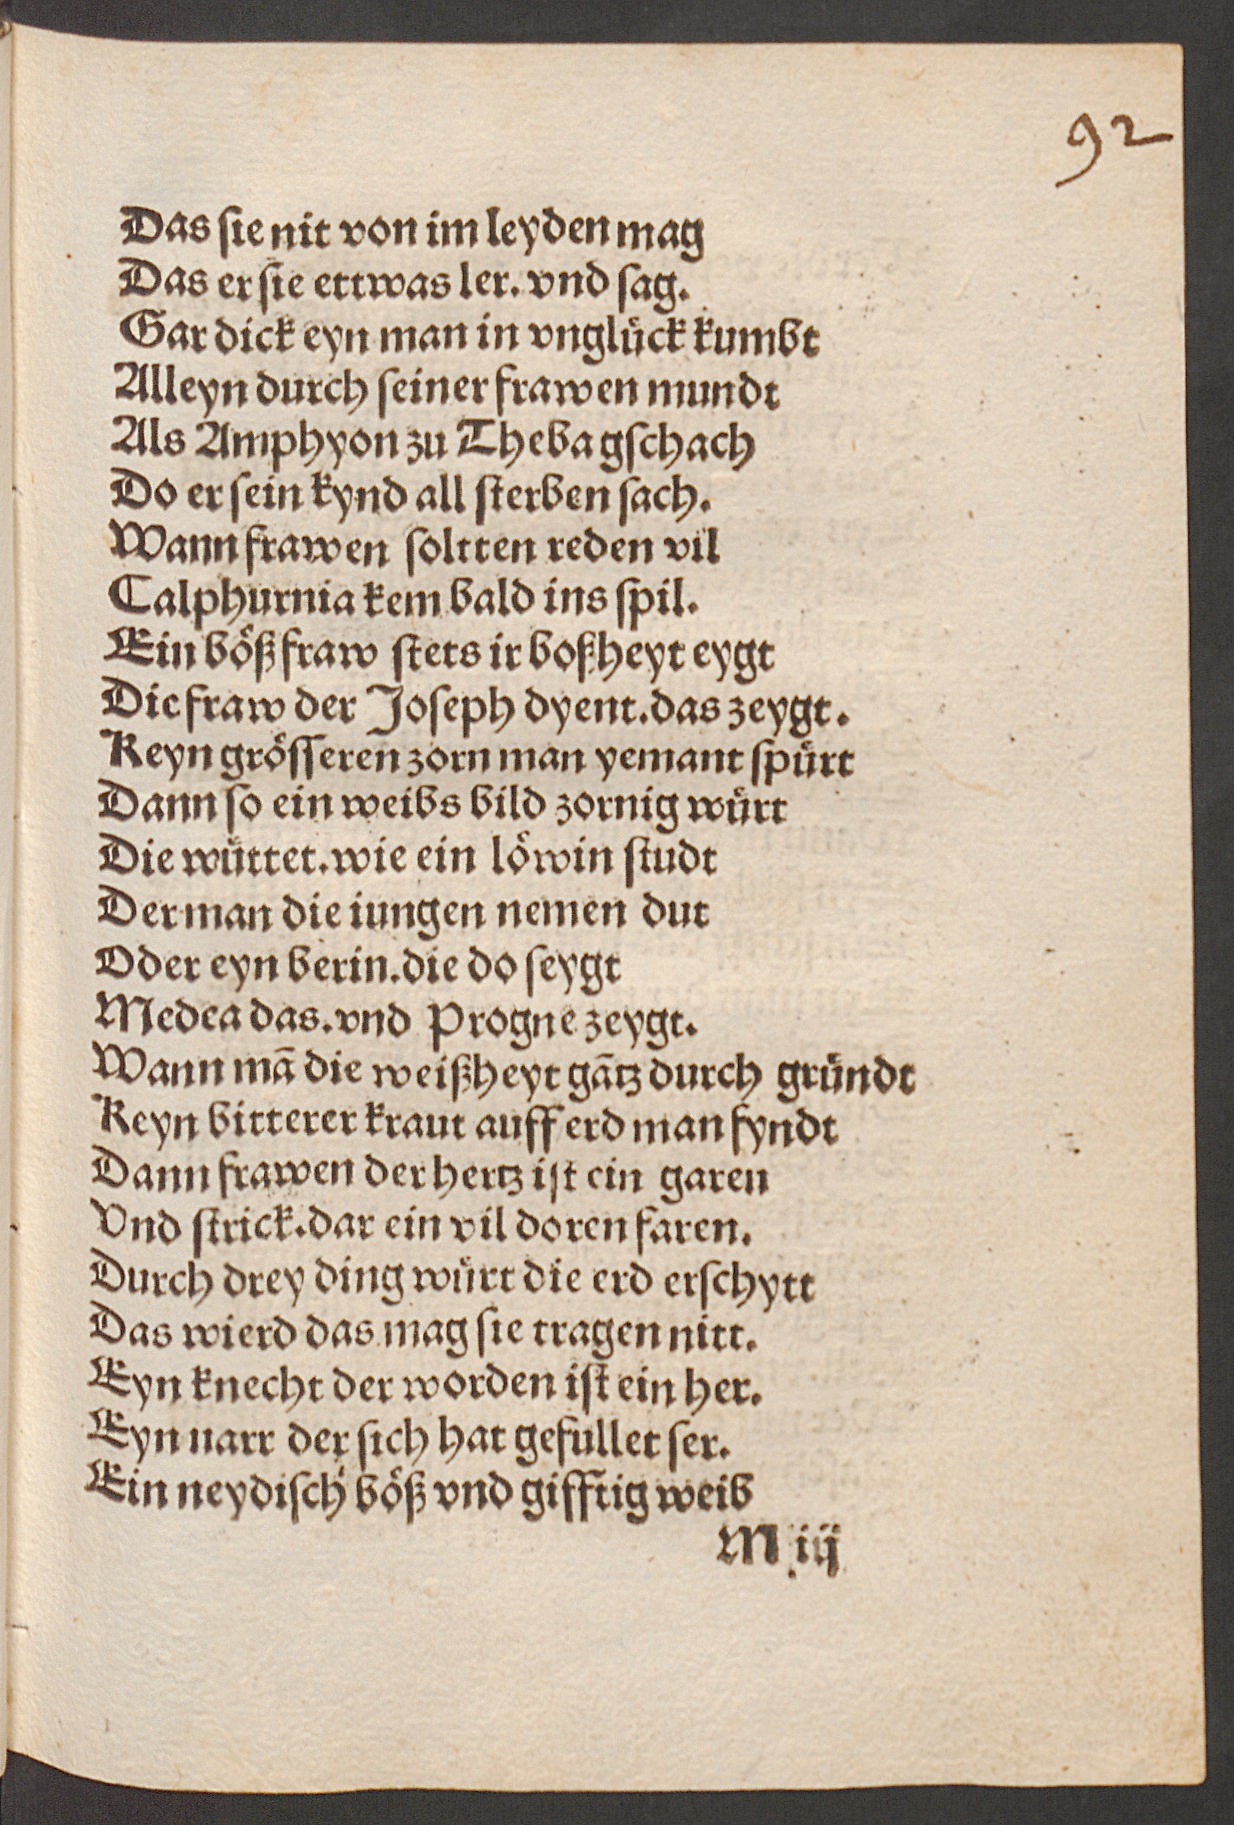 92
Das sie nit von im leyden mag
Das er sie ettwas ler. vnd sag.
Gar dick eyn man in vnglück kumbt
Alleyn durch seiner frawen mundt
Als Amphyon zu Theba gschach
Do er sein kynd all sterben sach.
Wann frawen soltten reden vil
Calphurnia kem bald ins spil.
Ein böß fraw stets ir boßheyt eygt
Die fraw der Joseph dyent. das zeygt.
Keyn grösseren zorn man yemant spürt
Dann so ein weibs bild zornig würt
Die wüttet. wie ein löwin studt
Der man die iungen nemen dut
Oder eyn berin. die do seygt
Medea das. vnd Progne zeygt.
Wann mā die weißheyt gātz durch gründt
Keyn bitterer kraut auff erd man fyndt
Dann frawen der hertz ist ein garen
Vnd strick. dar ein vil doren faren.
Durch drey ding würt die erd erschytt
Das wierd das mag sie tragen nitt.
Eyn knecht der worden ist ein her.
Eyn narr der sich hat gefullet ser.
Ein neydisch böß vnd gifftig weib
M iij